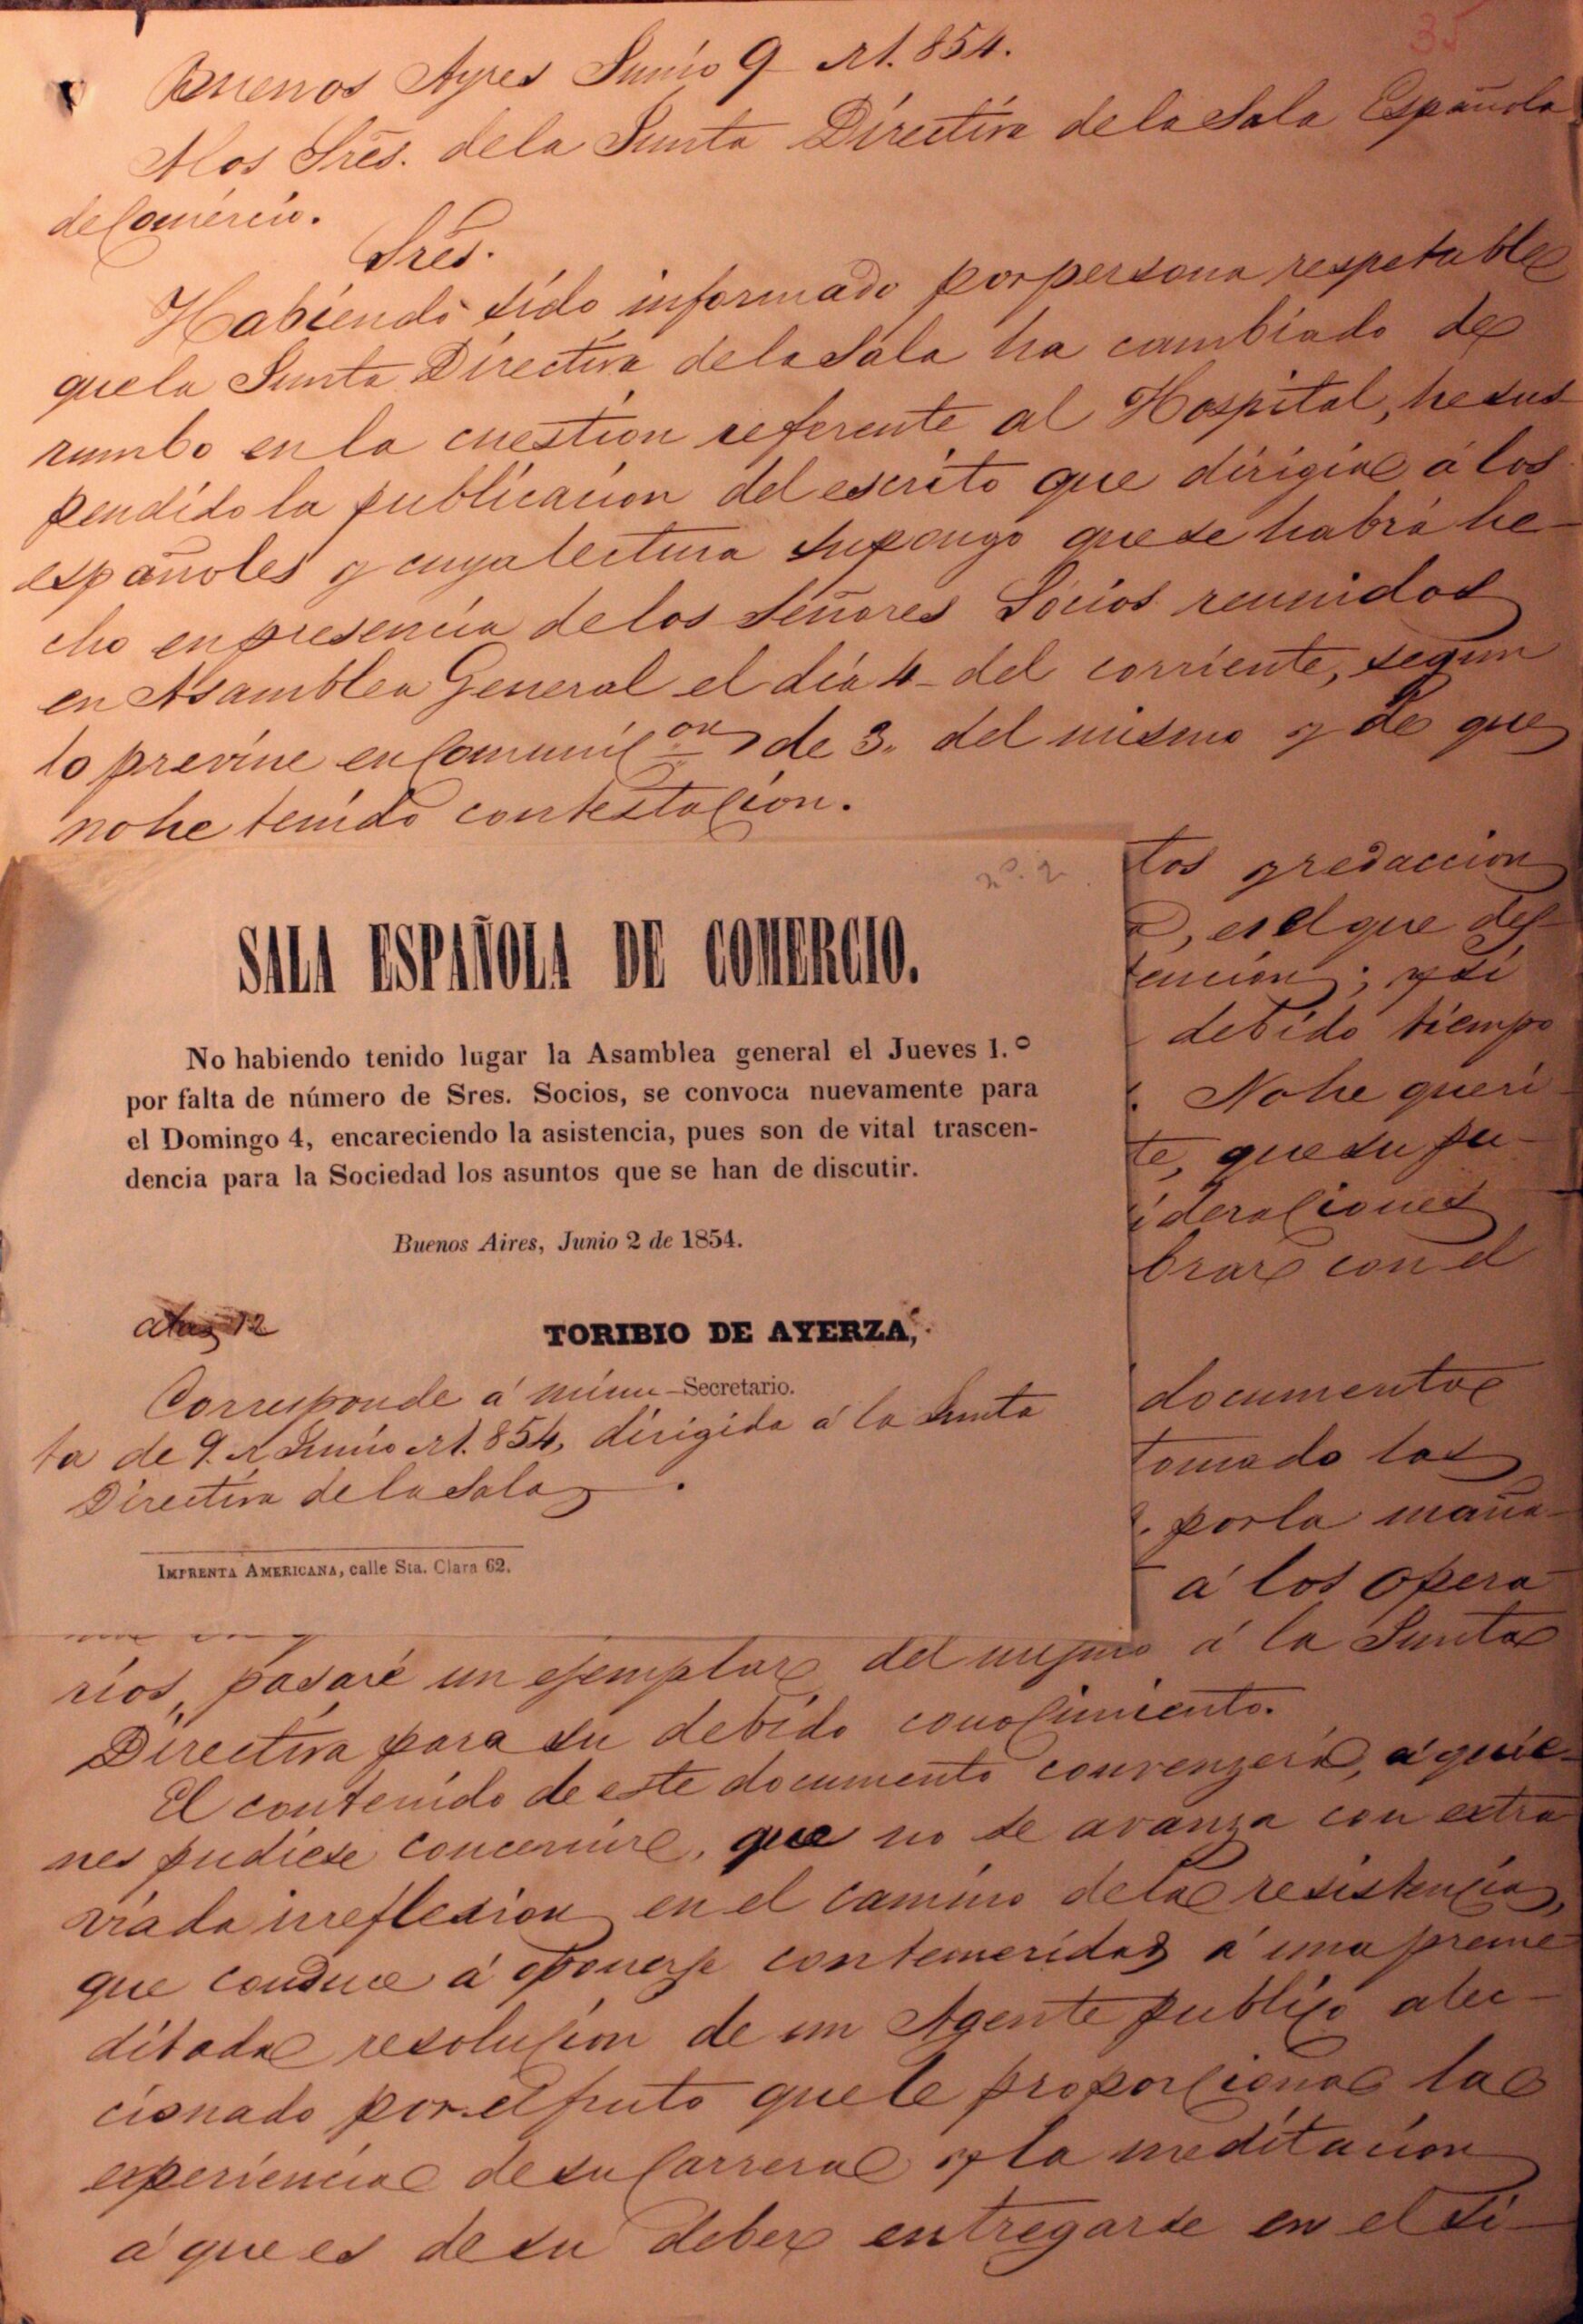 35
Buenos Ayres Junio 9 de 1.854.
A los Sres. dela Junta Directiva dela Sala Española
de Comercio.
Sres.
Habiendo sido informado por persona respetable
que la Junta Directiva dela Sala ha cambiado de
rumbo en la cuestion referente al Hospital, he sus
pendido la publicacion del escrito que dirigia á los
españoles y cuya lectura supongo que se habrá he-
cho en presencia de los Señores Socios reunidos
en Asamblea General el dia 4 del corriente, segun
lo previne en Comunicon de 3. del mismo y de que
no he tenido contestacion.
nº. 2.
SALA ESPAÑOLA DE COMERCIO.
No habiendo tenido lugar la Asamblea general el Jueves 1.º
por falta de número de Sres. Socios, se convoca nuevamente para
el Domingo 4, encareciendo la asistencia, pues son de vital trascen-
dencia para la Sociedad los asuntos que se han de discutir.
Buenos Aires, Junio 2 de 1854.
12
TORIBIO DE AYERZA,
Secretario.
Corresponde á minu-
ta de 9. de Junio de 1.854, dirigida á la Junta
Directiva de la Sala.
IMPRENTA AMERICANA, calle Sta. Clara 62.
tos y redaccion
, es el que des-
tencion; y si
debido tiempo
No he queri-
te, que su pu-
ideraciones
brar con el
documento
tomado las
por la maña-
á los opera-
rios, pasaré un ejemplar del mismo á la Junta
Directiva para su debido conocimiento.
El contenido de este documento convenzerá, á quie-
nes pudiese concernir, que no se avanza con extra
viada irreflexion en el camino de la resistencia,
que conduce á oponerse con temeridad á una preme-
ditada resolucion de un Agente publico alec-
cionado por el fruto que le proporciona la
experiencia de su Carrera y la meditacion
á que es de su deber entregarse en el si-